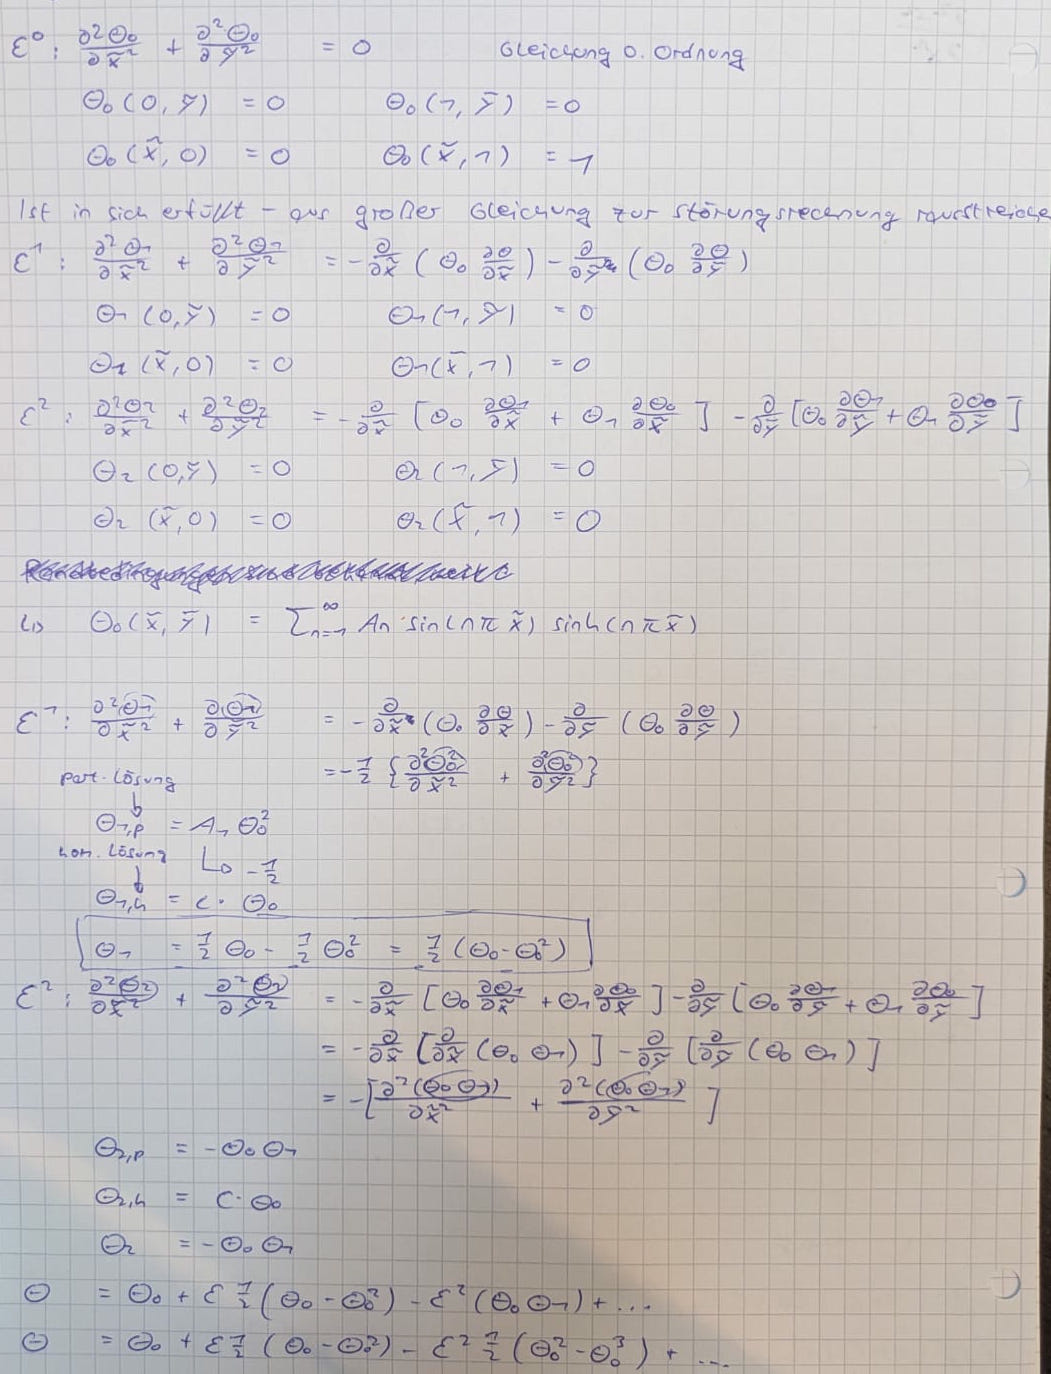 ε⁰: ∂²Θ₀/∂x̃² + ∂²Θ₀/∂ỹ² = 0 Gleichung 0. Ordnung
Θ₀(0,ỹ) = 0 Θ₀(1,ỹ) = 0
Θ₀(x̃,0) = 0 Θ₀(x̃,1) = 1
Ist in sich erfüllt - aus großer Gleichung zur Störungsrechnung rausstreiche
ε¹: ∂²Θ₁/∂x̃² + ∂²Θ₁/∂ỹ² = -∂/∂x̃ (Θ₀ ∂Θ/∂x̃) - ∂/∂ỹ (Θ₀ ∂Θ/∂ỹ)
Θ₁(0,ỹ) = 0 Θ₁(1,ỹ) = 0
Θ₁(x̃,0) = 0 Θ₁(x̃,1) = 0
ε²: ∂²Θ₂/∂x̃² + ∂²Θ₂/∂ỹ² = -∂/∂x̃ [Θ₀ ∂Θ₁/∂x̃ + Θ₁ ∂Θ₀/∂x̃] - ∂/∂ỹ [Θ₀ ∂Θ₁/∂ỹ + Θ₁ ∂Θ₀/∂ỹ]
Θ₂(0,ỹ) = 0 Θ₂(1,ỹ) = 0
Θ₂(x̃,0) = 0 Θ₂(x̃,1) = 0
↳ Θ₀(x̃,ỹ) = Σₙ₌₁^∞ An sin(nπx̃) sinh(nπx̃)
ε¹: ∂²Θ₁/∂x̃² + ∂Θ₁/∂ỹ² = -∂/∂x̃ (Θ₀ ∂Θ/∂x̃) - ∂/∂ỹ (Θ₀ ∂Θ/∂ỹ)
= -1/2 {∂²Θ₀²/∂x̃² + ∂²Θ₀²/∂ỹ²}
part. Lösung
↓
Θ₁,p = A₁ Θ₀²
hom. Lösung ↳ -1/2
↓
Θ₁,h = c · Θ₀
Θ₁ = 1/2 Θ₀ - 1/2 Θ₀² = 1/2 (Θ₀-Θ₀²)
ε²: ∂²Θ₂/∂x̃² + ∂²Θ₂/∂ỹ² = -∂/∂x̃ [Θ₀ ∂Θ₁/∂x̃ + Θ₁ ∂Θ₀/∂x̃] - ∂/∂ỹ [Θ₀ ∂Θ₁/∂ỹ + Θ₁ ∂Θ₀/∂ỹ]
= -∂/∂x̃ [∂/∂x̃ (Θ₀ Θ₁)] - ∂/∂ỹ [∂/∂ỹ (Θ₀ Θ₁)]
= -[∂²(Θ₀Θ₁)/∂x̃² + ∂²(Θ₀Θ₁)/∂ỹ²]
Θ₂,p = -Θ₀Θ₁
Θ₂,h = C·Θ₀
Θ₂ = -Θ₀Θ₁
Θ = Θ₀ + ε 1/2 (Θ₀-Θ₀²) - ε²(Θ₀Θ₁) + ...
Θ = Θ₀ + ε 1/2 (Θ₀-Θ₀²) - ε² 1/2 (Θ₀²-Θ₀³) + ...